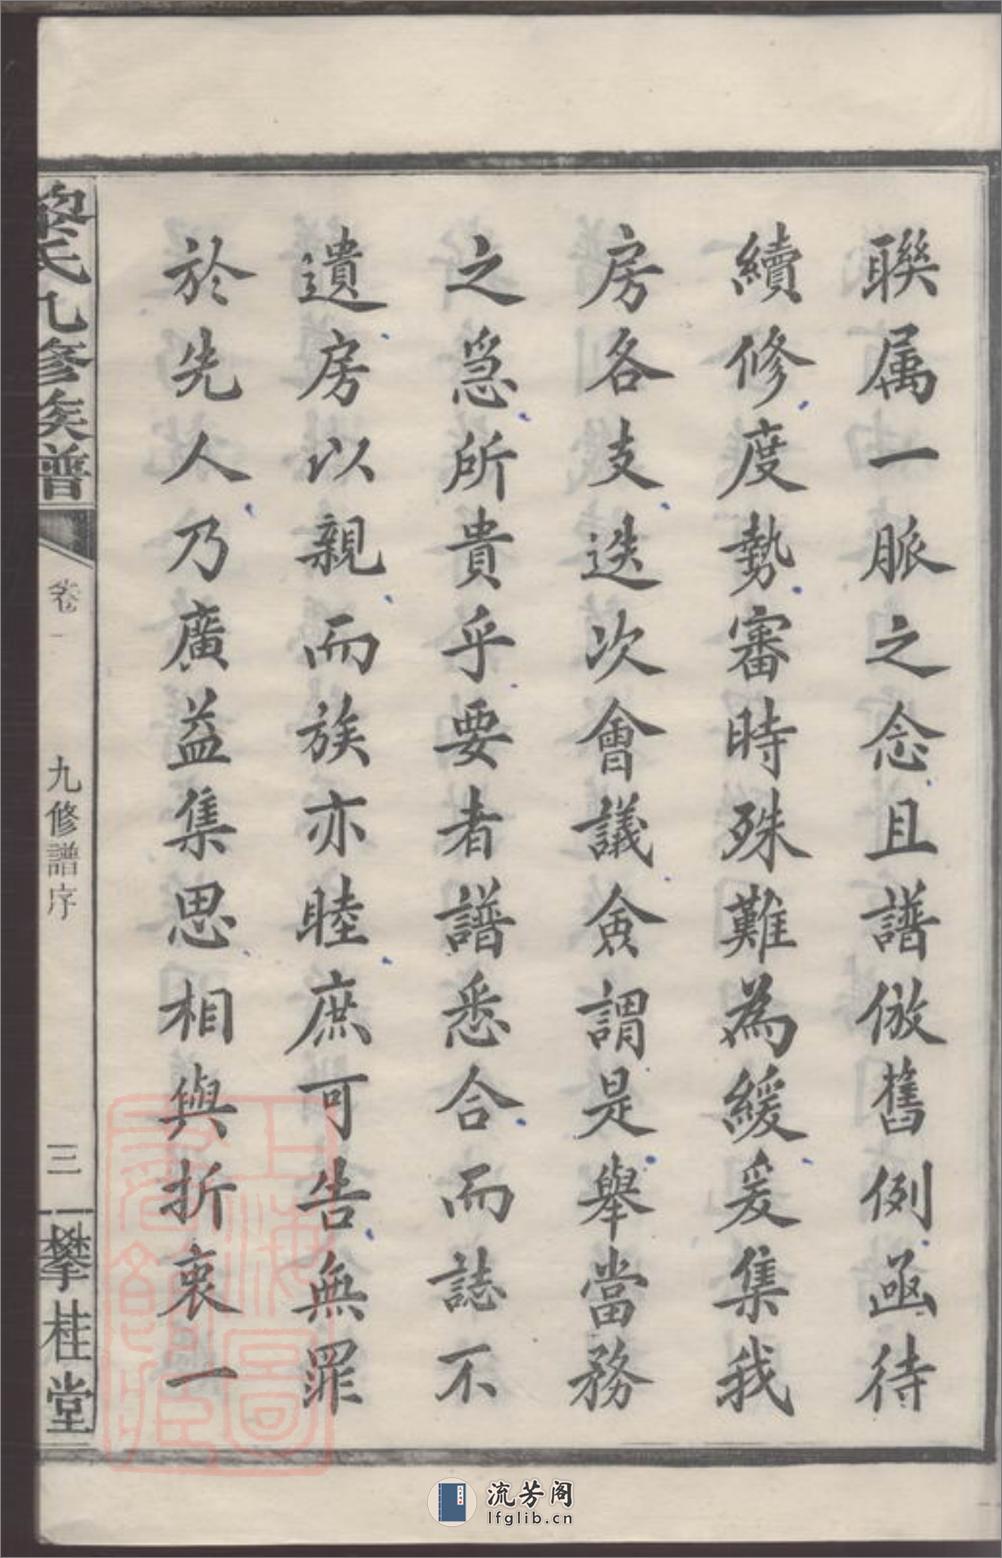 聯属一脈之念且譜倣舊例亟待
續修度勢審時殊難為緩爰集我
房各支迭次會議僉謂是舉當務
之急所貴乎要者譜悉合而誌不
遺房以親而族亦睦庶可告無罪
於先人乃廣益集思相與折衷一
黎氏九修族譜
卷一
九修譜序
三
攀桂堂
上海圖書館藏
流芳阁
lfglib.cn